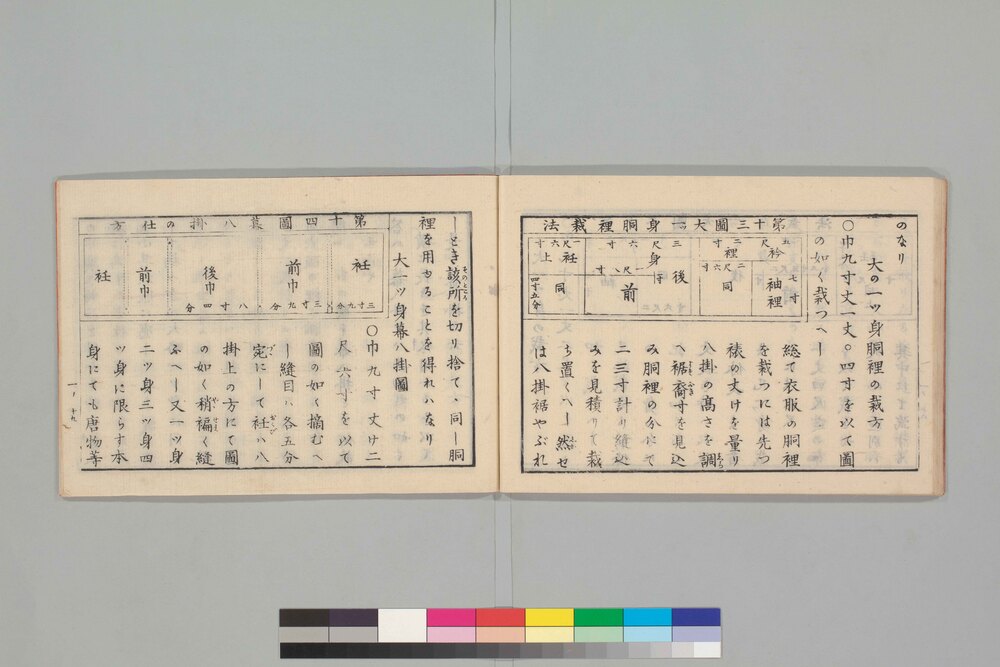 のなり
大の一ッ身胴裡の裁方
〇巾九寸丈一丈。四寸を以て圖
の如く裁つへし
第十三圖大一ッ身胴裡裁法
五尺
衿
七寸
袖裡
二寸
裡
二尺六寸
同
三尺六寸
後
身行
前
一尺八寸
一尺六寸
衽
上
同
四寸五分
總て衣服の胴裡
を裁つには先つ
裱の丈けを量り
八掛の髙さを調
へ裾裔寸を見込
み胴裡の分にて
二三寸計り縫込
みを見積りて裁
ち置くへし然せ
は八掛裾やぶれ
しとき該所を切り捨て、同し胴
そのところ
裡を用ゐることを得れハなり
大一ッ身幕八掛圖
第十四圖幕八掛の仕方
衽
三寸九分
前巾
三寸九分
後巾
八寸四分
前巾
衽
〇巾九寸丈け二
尺六寸を以て
圖の如く摘むへ
し縫目ハ各五分
宛にして衽ハ八
掛上の方にて圖
の如く稍褊く縫
ふへし又一ッ身
二ッ身三ッ身四
ッ身に限らす本
身にても唐物等